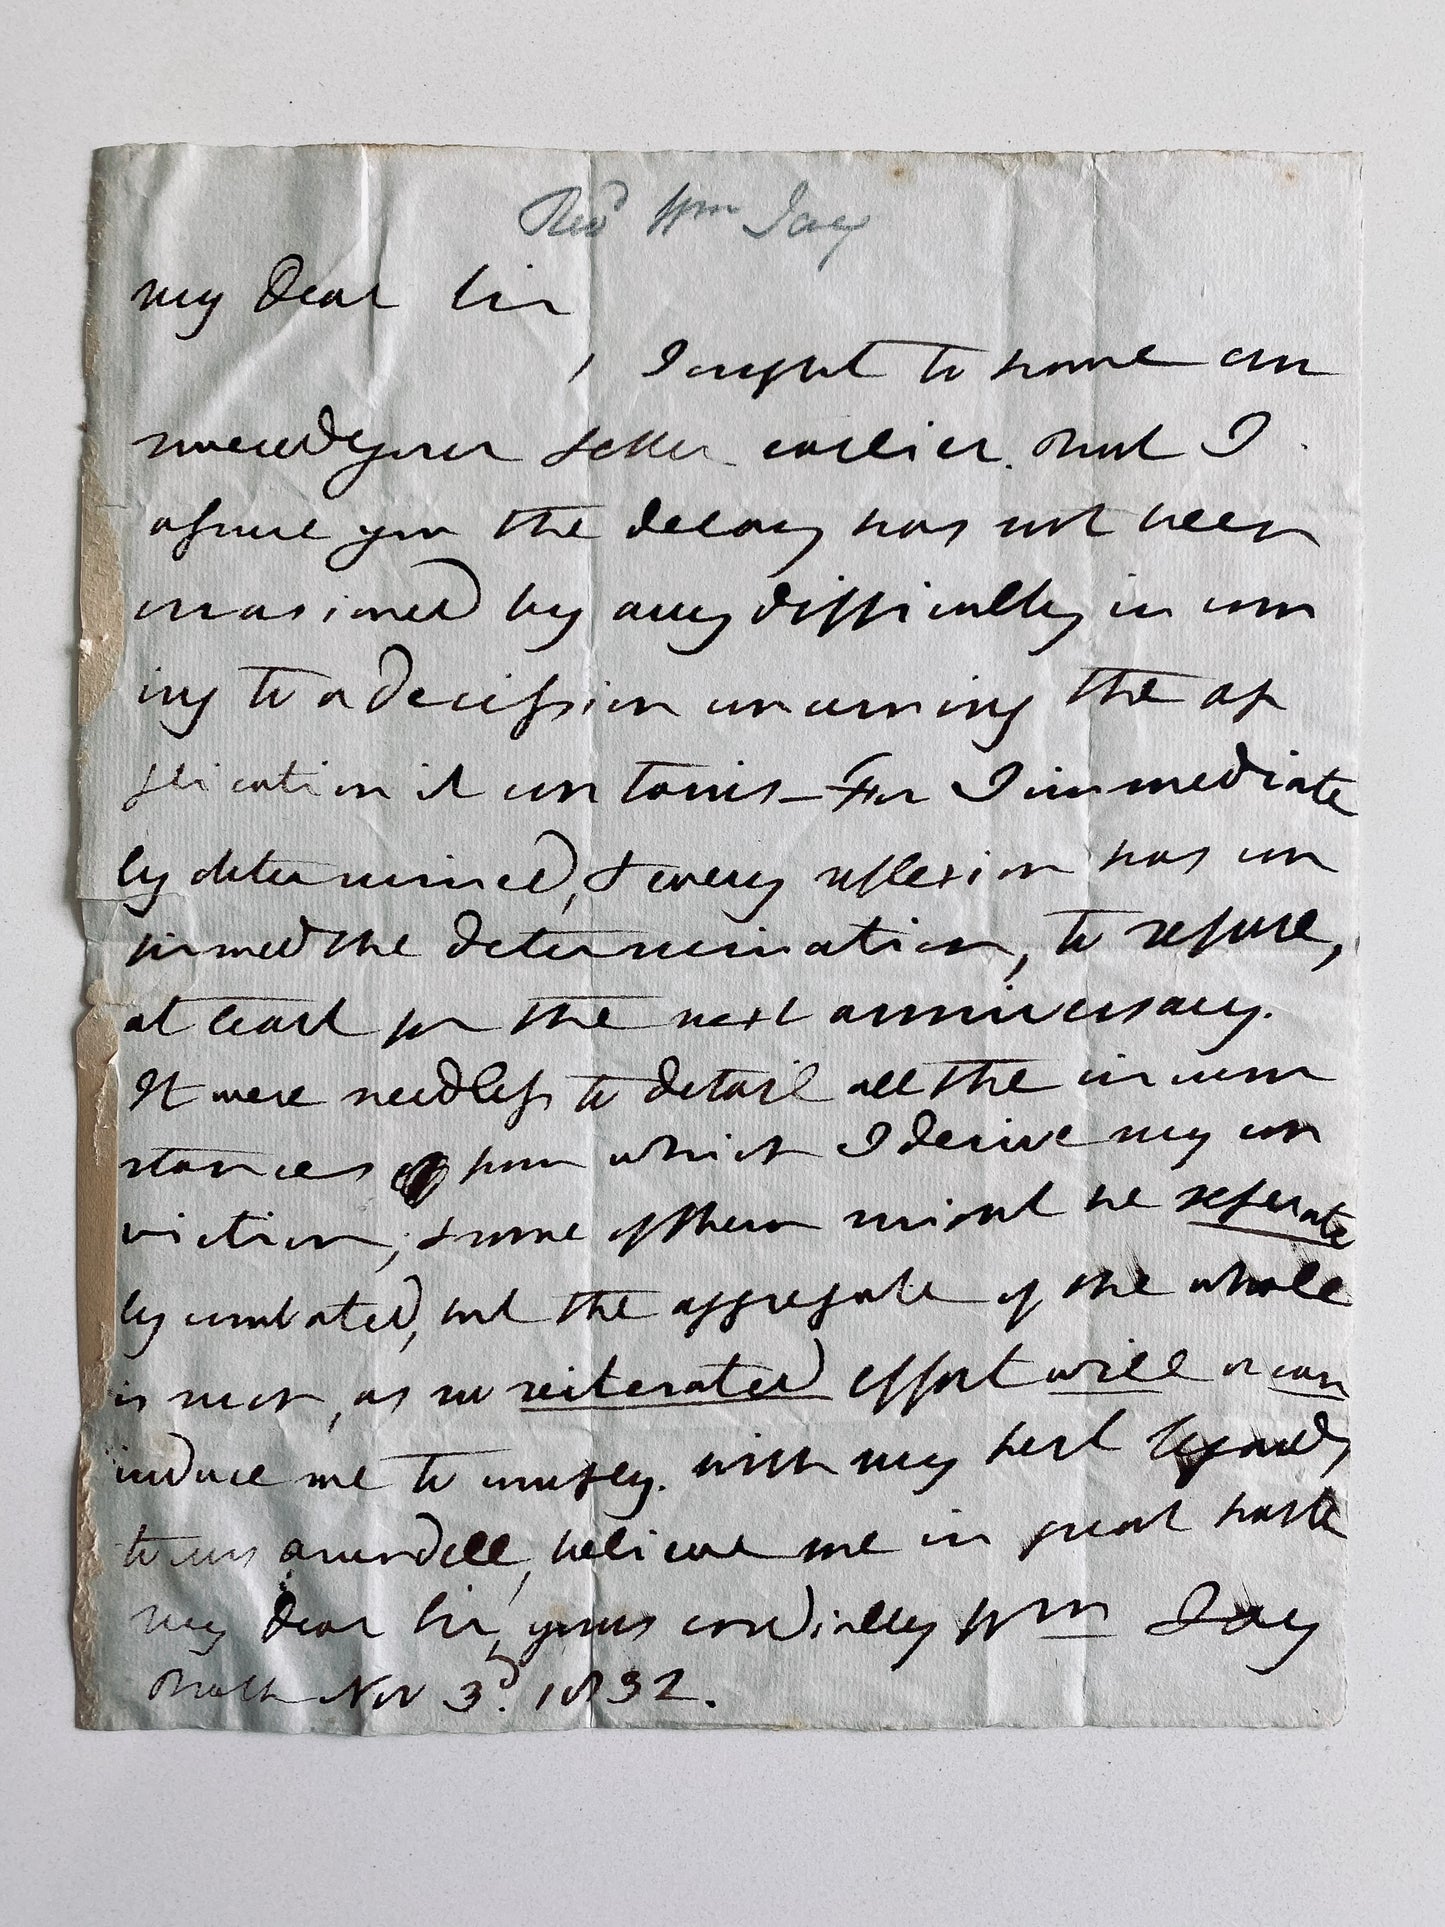 Revd Wm Jay
My Dear Sir
I ought to have an
swered your letter earlier. But I
assure you the delay has not been
occasioned by any difficulty in com
ing to a decission concerning the ap
plication it contains - For I immediate
ly determined, & every reflexion has con
firmed the determination, to refuse,
at least for the next anniversary.
It were needless to detail all the circum
stances from which I derive my con
viction; & some of them might be seperate
ly combated, but the aggregate of the whole
is such, as no reiterated effort will or can
induce me to comply. With my best regards
to Mrs Arundell, believe me in great haste
My Dear Sir, yours cordially Wm Jay
Bath Nov 3d. 1832.